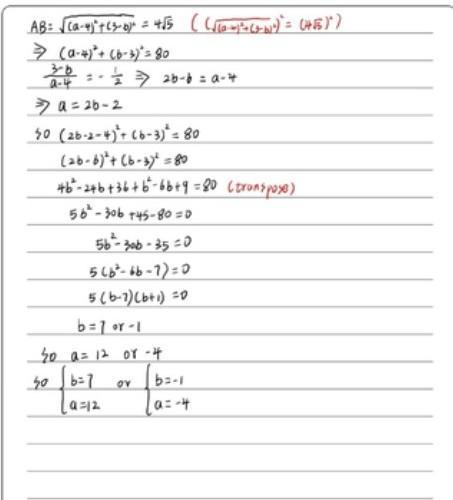 AB = √(a-4)²+(3-b)² = 4√5 ( (√(a-4)²+(3-b)²)² = (4√5)² )
⇒ (a-4)² + (b-3)² = 80
(3-b)/(a-4) = -1/2 ⇒ 2b-6 = a-4
⇒ a = 2b-2
so (2b-2-4)² + (b-3)² = 80
(2b-6)² + (b-3)² = 80
4b² - 24b + 36 + b² - 6b + 9 = 80 (transpose)
5b² - 30b + 45 - 80 = 0
5b² - 30b - 35 = 0
5(b² - 6b - 7) = 0
5(b-7)(b+1) = 0
b = 7 or -1
so a = 12 or -4
so { b=7 or { b=-1
a=12 a=-4